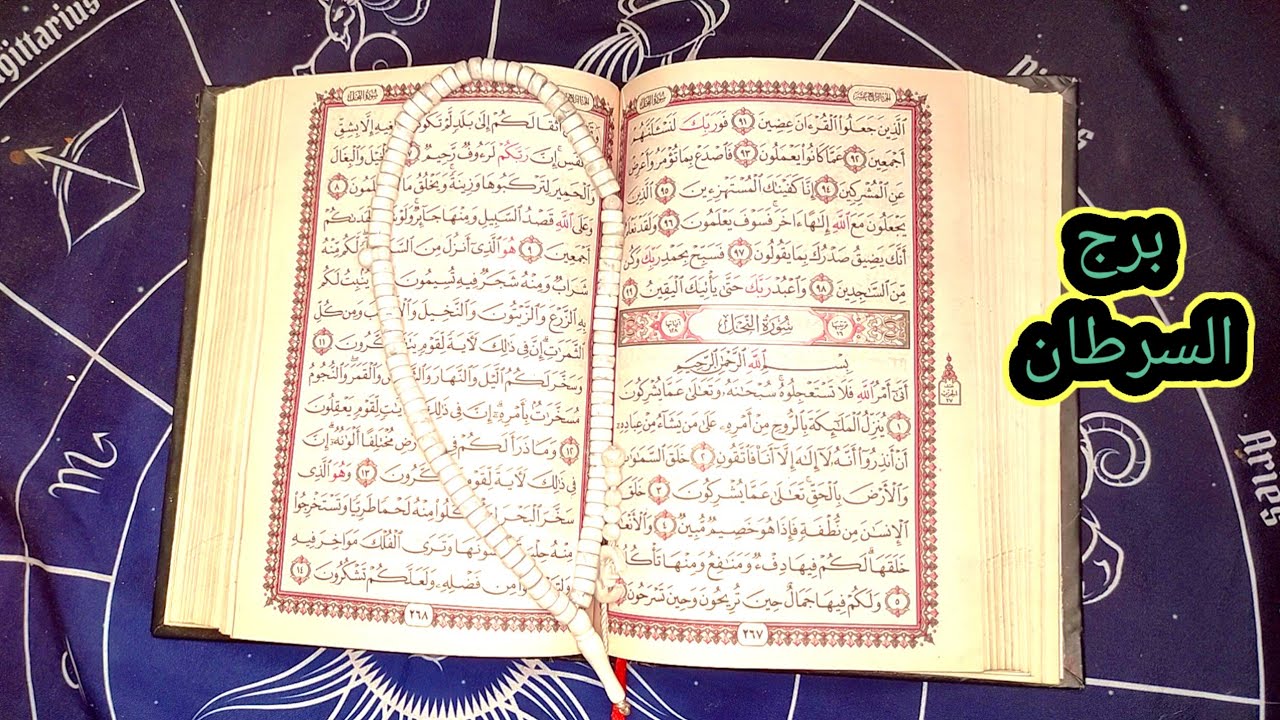 Sagittarius
برج
السرطان
Aries
سورة الحجر
الجزء الرابع عشر
ٱلَّذِينَ جَعَلُوا۟ ٱلْقُرْءَانَ عِضِينَ ٩١ فَوَرَبِّكَ لَنَسْـَٔلَنَّهُمْ
أَجْمَعِينَ ٩٢ عَمَّا كَانُوا۟ يَعْمَلُونَ ٩٣ فَٱصْدَعْ بِمَا تُؤْمَرُ وَأَعْرِضْ
عَنِ ٱلْمُشْرِكِينَ ٩٤ إِنَّا كَفَيْنَٰكَ ٱلْمُسْتَهْزِءِينَ ٩٥ ٱلَّذِينَ
يَجْعَلُونَ مَعَ ٱللَّهِ إِلَٰهًا ءَاخَرَ ۚ فَسَوْفَ يَعْلَمُونَ ٩٦ وَلَقَدْ نَعْلَمُ
أَنَّكَ يَضِيقُ صَدْرُكَ بِمَا يَقُولُونَ ٩٧ فَسَبِّحْ بِحَمْدِ رَبِّكَ وَكُن
مِّنَ ٱلسَّٰجِدِينَ ٩٨ وَٱعْبُدْ رَبَّكَ حَتَّىٰ يَأْتِيَكَ ٱلْيَقِينُ ٩٩
ترتيبها ١٦ سُورَةُ النَّحْلِ آياتها ١٢٨
بِسْمِ ٱللَّهِ ٱلرَّحْمَٰنِ ٱلرَّحِيمِ
أَتَىٰٓ أَمْرُ ٱللَّهِ فَلَا تَسْتَعْجِلُوهُ ۚ سُبْحَٰنَهُۥ وَتَعَٰلَىٰ عَمَّا يُشْرِكُونَ
١ يُنَزِّلُ ٱلْمَلَٰٓئِكَةَ بِٱلرُّوحِ مِنْ أَمْرِهِۦ عَلَىٰ مَن يَشَآءُ مِنْ عِبَادِهِۦٓ
أَنْ أَنذِرُوٓا۟ أَنَّهُۥ لَآ إِلَٰهَ إِلَّآ أَنَا۠ فَٱتَّقُونِ ٢ خَلَقَ ٱلسَّمَٰوَٰتِ
وَٱلْأَرْضَ بِٱلْحَقِّ ۚ تَعَٰلَىٰ عَمَّا يُشْرِكُونَ ٣ خَلَقَ
ٱلْإِنسَٰنَ مِن نُّطْفَةٍ فَإِذَا هُوَ خَصِيمٌ مُّبِينٌ ٤ وَٱلْأَنْعَٰمَ
خَلَقَهَا ۗ لَكُمْ فِيهَا دِفْءٌ وَمَنَٰفِعُ وَمِنْهَا تَأْكُلُونَ
٥ وَلَكُمْ فِيهَا جَمَالٌ حِينَ تُرِيحُونَ وَحِينَ تَسْرَحُونَ
٢٦٧
أَثْقَالَكُمْ إِلَىٰ بَلَدٍ لَّمْ تَكُونُوا۟ بَٰلِغِيهِ إِلَّا بِشِقِّ
ٱلْأَنفُسِ ۚ إِنَّ رَبَّكُمْ لَرَءُوفٌ رَّحِيمٌ وَٱلْخَيْلَ وَٱلْبِغَالَ
وَٱلْحَمِيرَ لِتَرْكَبُوهَا وَزِينَةً ۚ وَيَخْلُقُ مَا لَا تَعْلَمُونَ ٨
وَعَلَى ٱللَّهِ قَصْدُ ٱلسَّبِيلِ وَمِنْهَا جَآئِرٌ ۚ وَلَوْ شَآءَ لَهَدَىٰكُمْ
أَجْمَعِينَ ٩ هُوَ ٱلَّذِىٓ أَنزَلَ مِنَ ٱلسَّمَآءِ مَآءً ۖ لَّكُم مِّنْهُ
شَرَابٌ وَمِنْهُ شَجَرٌ فِيهِ تُسِيمُونَ يُنۢبِتُ لَكُم
بِهِ ٱلزَّرْعَ وَٱلزَّيْتُونَ وَٱلنَّخِيلَ وَٱلْأَعْنَٰبَ وَمِن كُلِّ
ٱلثَّمَرَٰتِ ۗ إِنَّ فِى ذَٰلِكَ لَءَايَةً لِّقَوْمٍ يَتَفَكَّرُونَ ١١
وَسَخَّرَ لَكُمُ ٱلَّيْلَ وَٱلنَّهَارَ وَٱلشَّمْسَ وَٱلْقَمَرَ ۖ وَٱلنُّجُومُ
مُسَخَّرَٰتٌۢ بِأَمْرِهِۦٓ ۗ إِنَّ فِى ذَٰلِكَ لَءَايَٰتٍ لِّقَوْمٍ يَعْقِلُونَ
١٢ وَمَا ذَرَأَ لَكُمْ فِى ٱلْأَرْضِ مُخْتَلِفًا أَلْوَٰنُهُۥٓ ۗ إِنَّ
فِى ذَٰلِكَ لَءَايَةً لِّقَوْمٍ يَذَّكَّرُونَ ١٣ وَهُوَ ٱلَّذِى
سَخَّرَ ٱلْبَحْرَ لِتَأْكُلُوا۟ مِنْهُ لَحْمًا طَرِيًّا وَتَسْتَخْرِجُوا۟
مِنْهُ حِلْيَةً تَلْبَسُونَهَا وَتَرَى ٱلْفُلْكَ مَوَاخِرَ فِيهِ
وَلِتَبْتَغُوا۟ مِن فَضْلِهِۦ وَلَعَلَّكُمْ تَشْكُرُونَ ١٤
٢٦٨